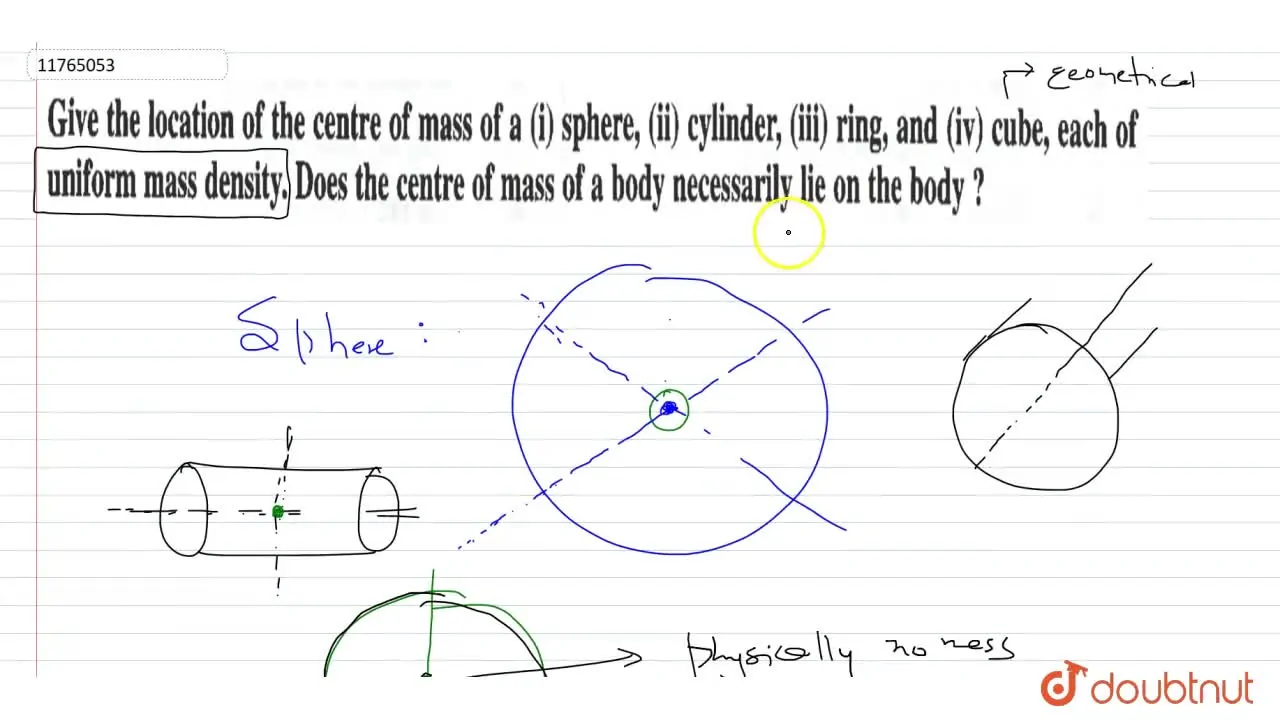 11765053
geometrical
Give the location of the centre of mass of a (i) sphere, (ii) cylinder, (iii) ring, and (iv) cube, each of
uniform mass density. Does the centre of mass of a body necessarily lie on the body ?
Sphere :
physically no mess
doubtnut